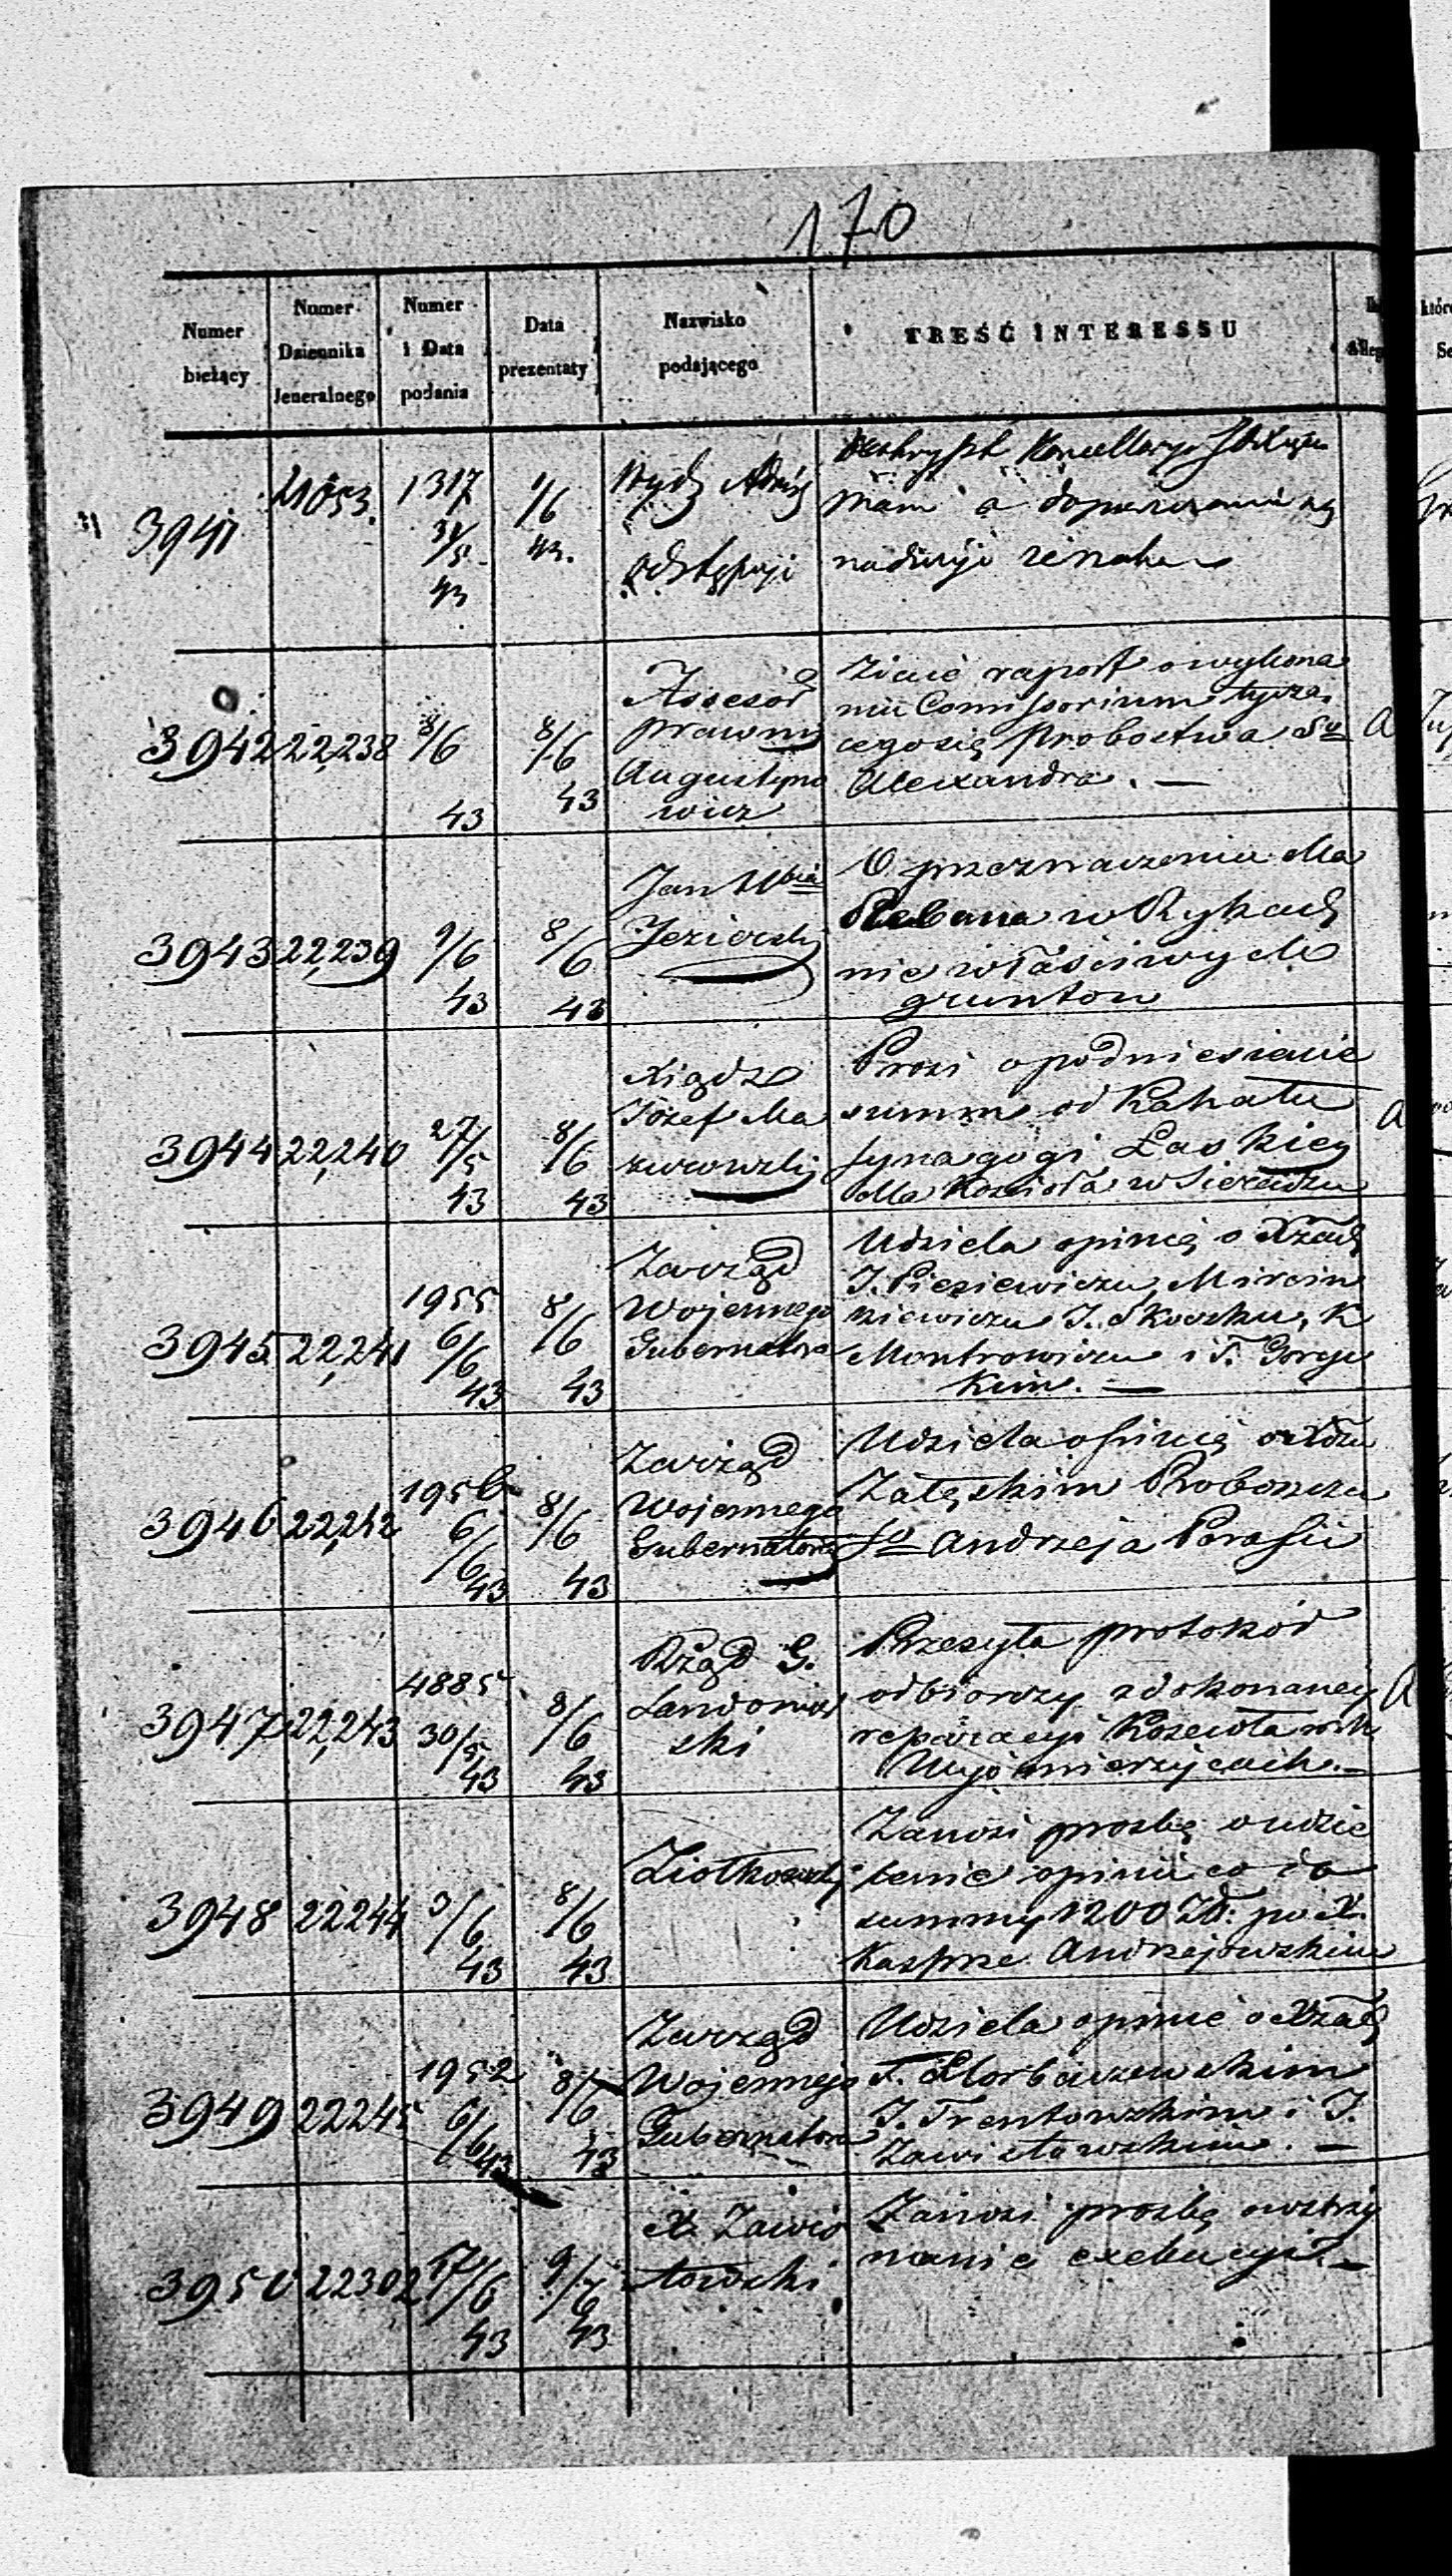 170
Numer bieżący
Numer Dziennika Jeneralnego
Numer i Data podania
Data prezentaty
Nazwisko podającego
TREŚĆ INTERESSU
3941
1317
31/5
43
1/6
43.
odstępuje
3942
22,238
8/6
43
8/6
43
Assesor
prawny
Augustyno
wicz
raport o wykona
niu Comissorium tycza,
cego się probostwa Sgo
Alexandra. —
3943
22,239
9/6
43
8/6
43
Jan Hbia
Jezierski
O przeznaczenie dla
Plebana w Rykach
niewłaściwych
gruntow
3944
22,240
27/5
43
8/6
43
Xiądz
Józef Ma
Prosi o podniesienie
summ od Kahału
synagogi Laskiey
dla Kościoła w Sieradzu
3945
22,241
1955
6/6
43
8/6
43
Zarząd
Wojennego
Gubernatora
Udziela opinią o Xżach
kiewiczu J. Skoczku, K
i F. Gorge
kim. —
3946
22,242
1956
6/6
43
8/6
43
Zarząd
Wojennego
Gubernatora
Udziela opinią o Xdzu
Załęskim Proboszczu
Sgo Andrzeja Parafii
3947
22,243
4885
30/5
43
8/6
43
Rząd G.
Sandomier
ski
Przesyła protokół
odbiorczy z dokonaney
reparacyi Kościoła
3948
22244
3/6
43
8/6
43
Ziółkowski
Zanosi prozbę o udzie
lenie opinii co do
summy 1200 Zł: po X.
Kasprze Andrzejowskim
3949
22245
1952
6/6
43
8/6
43
Zarząd
Wojennego
Gubernatora
Udziela opinie o Xżach
J. Trentowskim i J.
Zawistowskim. —
3950
22302
9/6
43
X. Zawis
towski
Zanosi prozbę o wstrzy
manie exekucyi. —